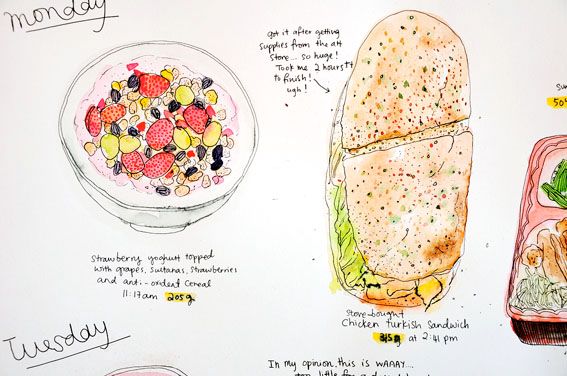 monday
Got it after getting
supplies from the art
store... so huge!
Took me 2 hours
to finish!
ugh!
Strawberry yoghurt topped
with grapes, sultanas, strawberries
and anti-oxident cereal
11:17am 205g
Store-bought
Chicken turkish sandwich
315g at 2:41 pm
Su
50
Tuesday
In my opinion, this is WAAAY...
too little for a